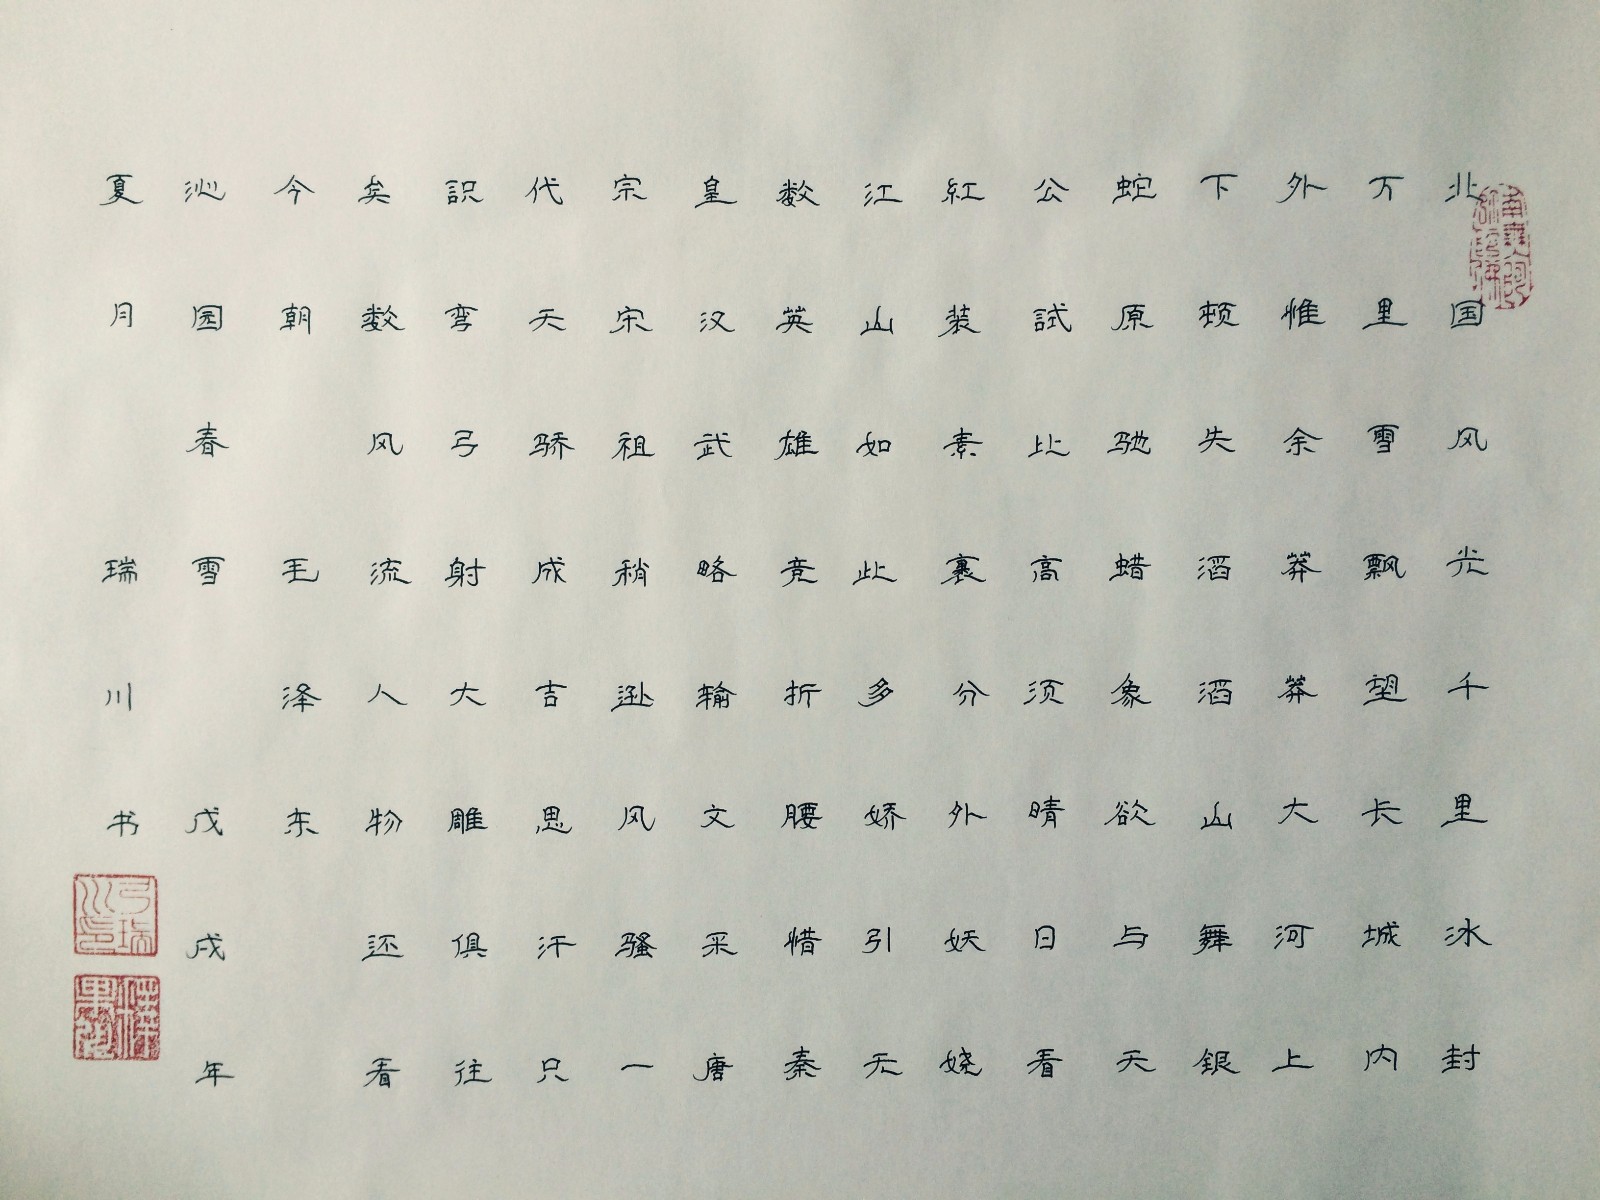 北国风光千里冰封
万里雪飘望长城内
外惟余莽莽大河上
下顿失滔滔山舞银
蛇原驰蜡象欲与天
公試比高须晴日看
紅装素裹分外妖娆
江山如此多娇引无
数英雄竞折腰惜秦
皇汉武略输文采唐
宗宋祖稍逊风骚一
代天骄成吉思汗只
識弯弓射大雕俱往
矣数风流人物还看
今朝 毛泽东
沁园春雪 戊戌年
夏月 瑞川书
弓瑞川印